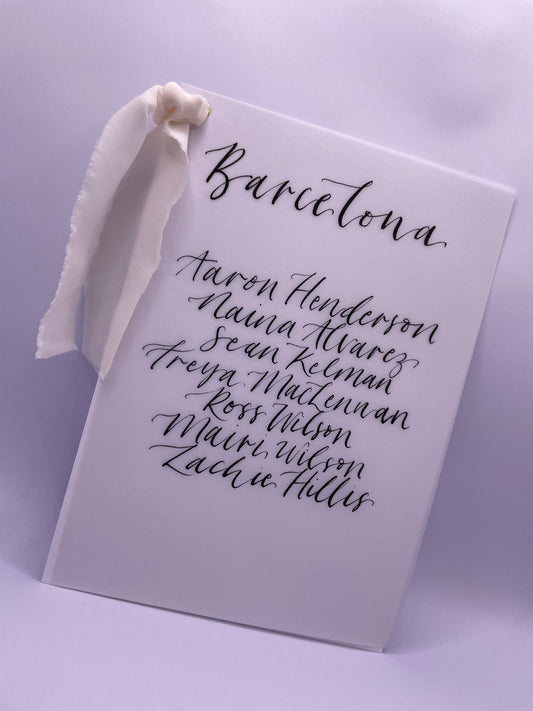 Barcelona
Aaron Henderson
Naina Alvarez
Sean Kelman
Freya MacLennan
Ross Wilson
Mairi Wilson
Zachie Hillis